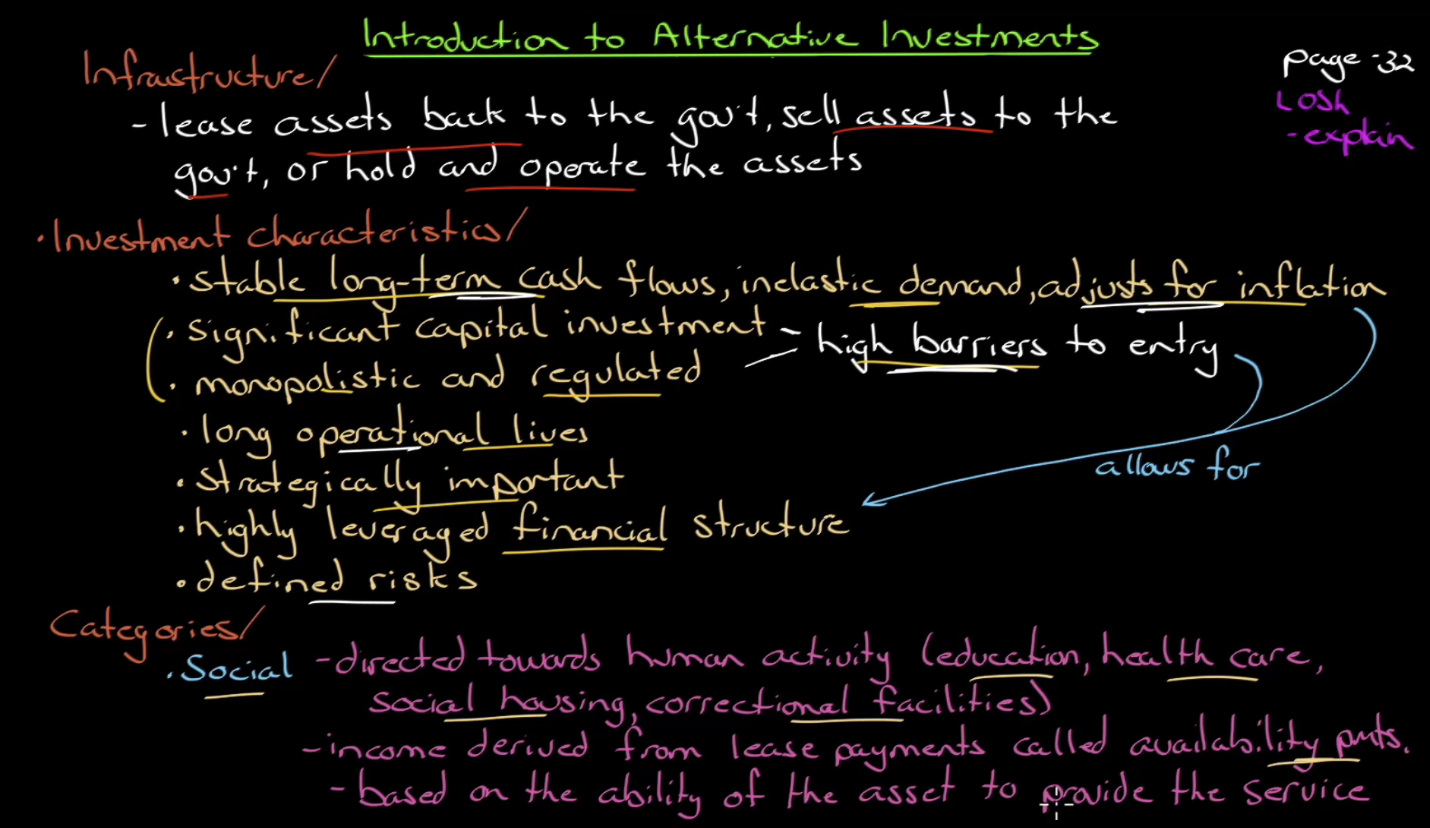 Introduction to Alternative Investments
page -32
LOSh
- explain
Infrastructure/
- lease assets back to the gov't, sell assets to the
gov't, or hold and operate the assets
· Investment characteristics/
· stable long-term cash flows, inelastic demand, adjusts for inflation
· significant capital investment - high barriers to entry
· monopolistic and regulated
· long operational lives
· strategically important
allows for
· highly leveraged financial structure
· defined risks
Categories/
· Social - directed towards human activity (education, health care,
social housing, correctional facilities)
- income derived from lease payments called availability pmts.
- based on the ability of the asset to provide the service